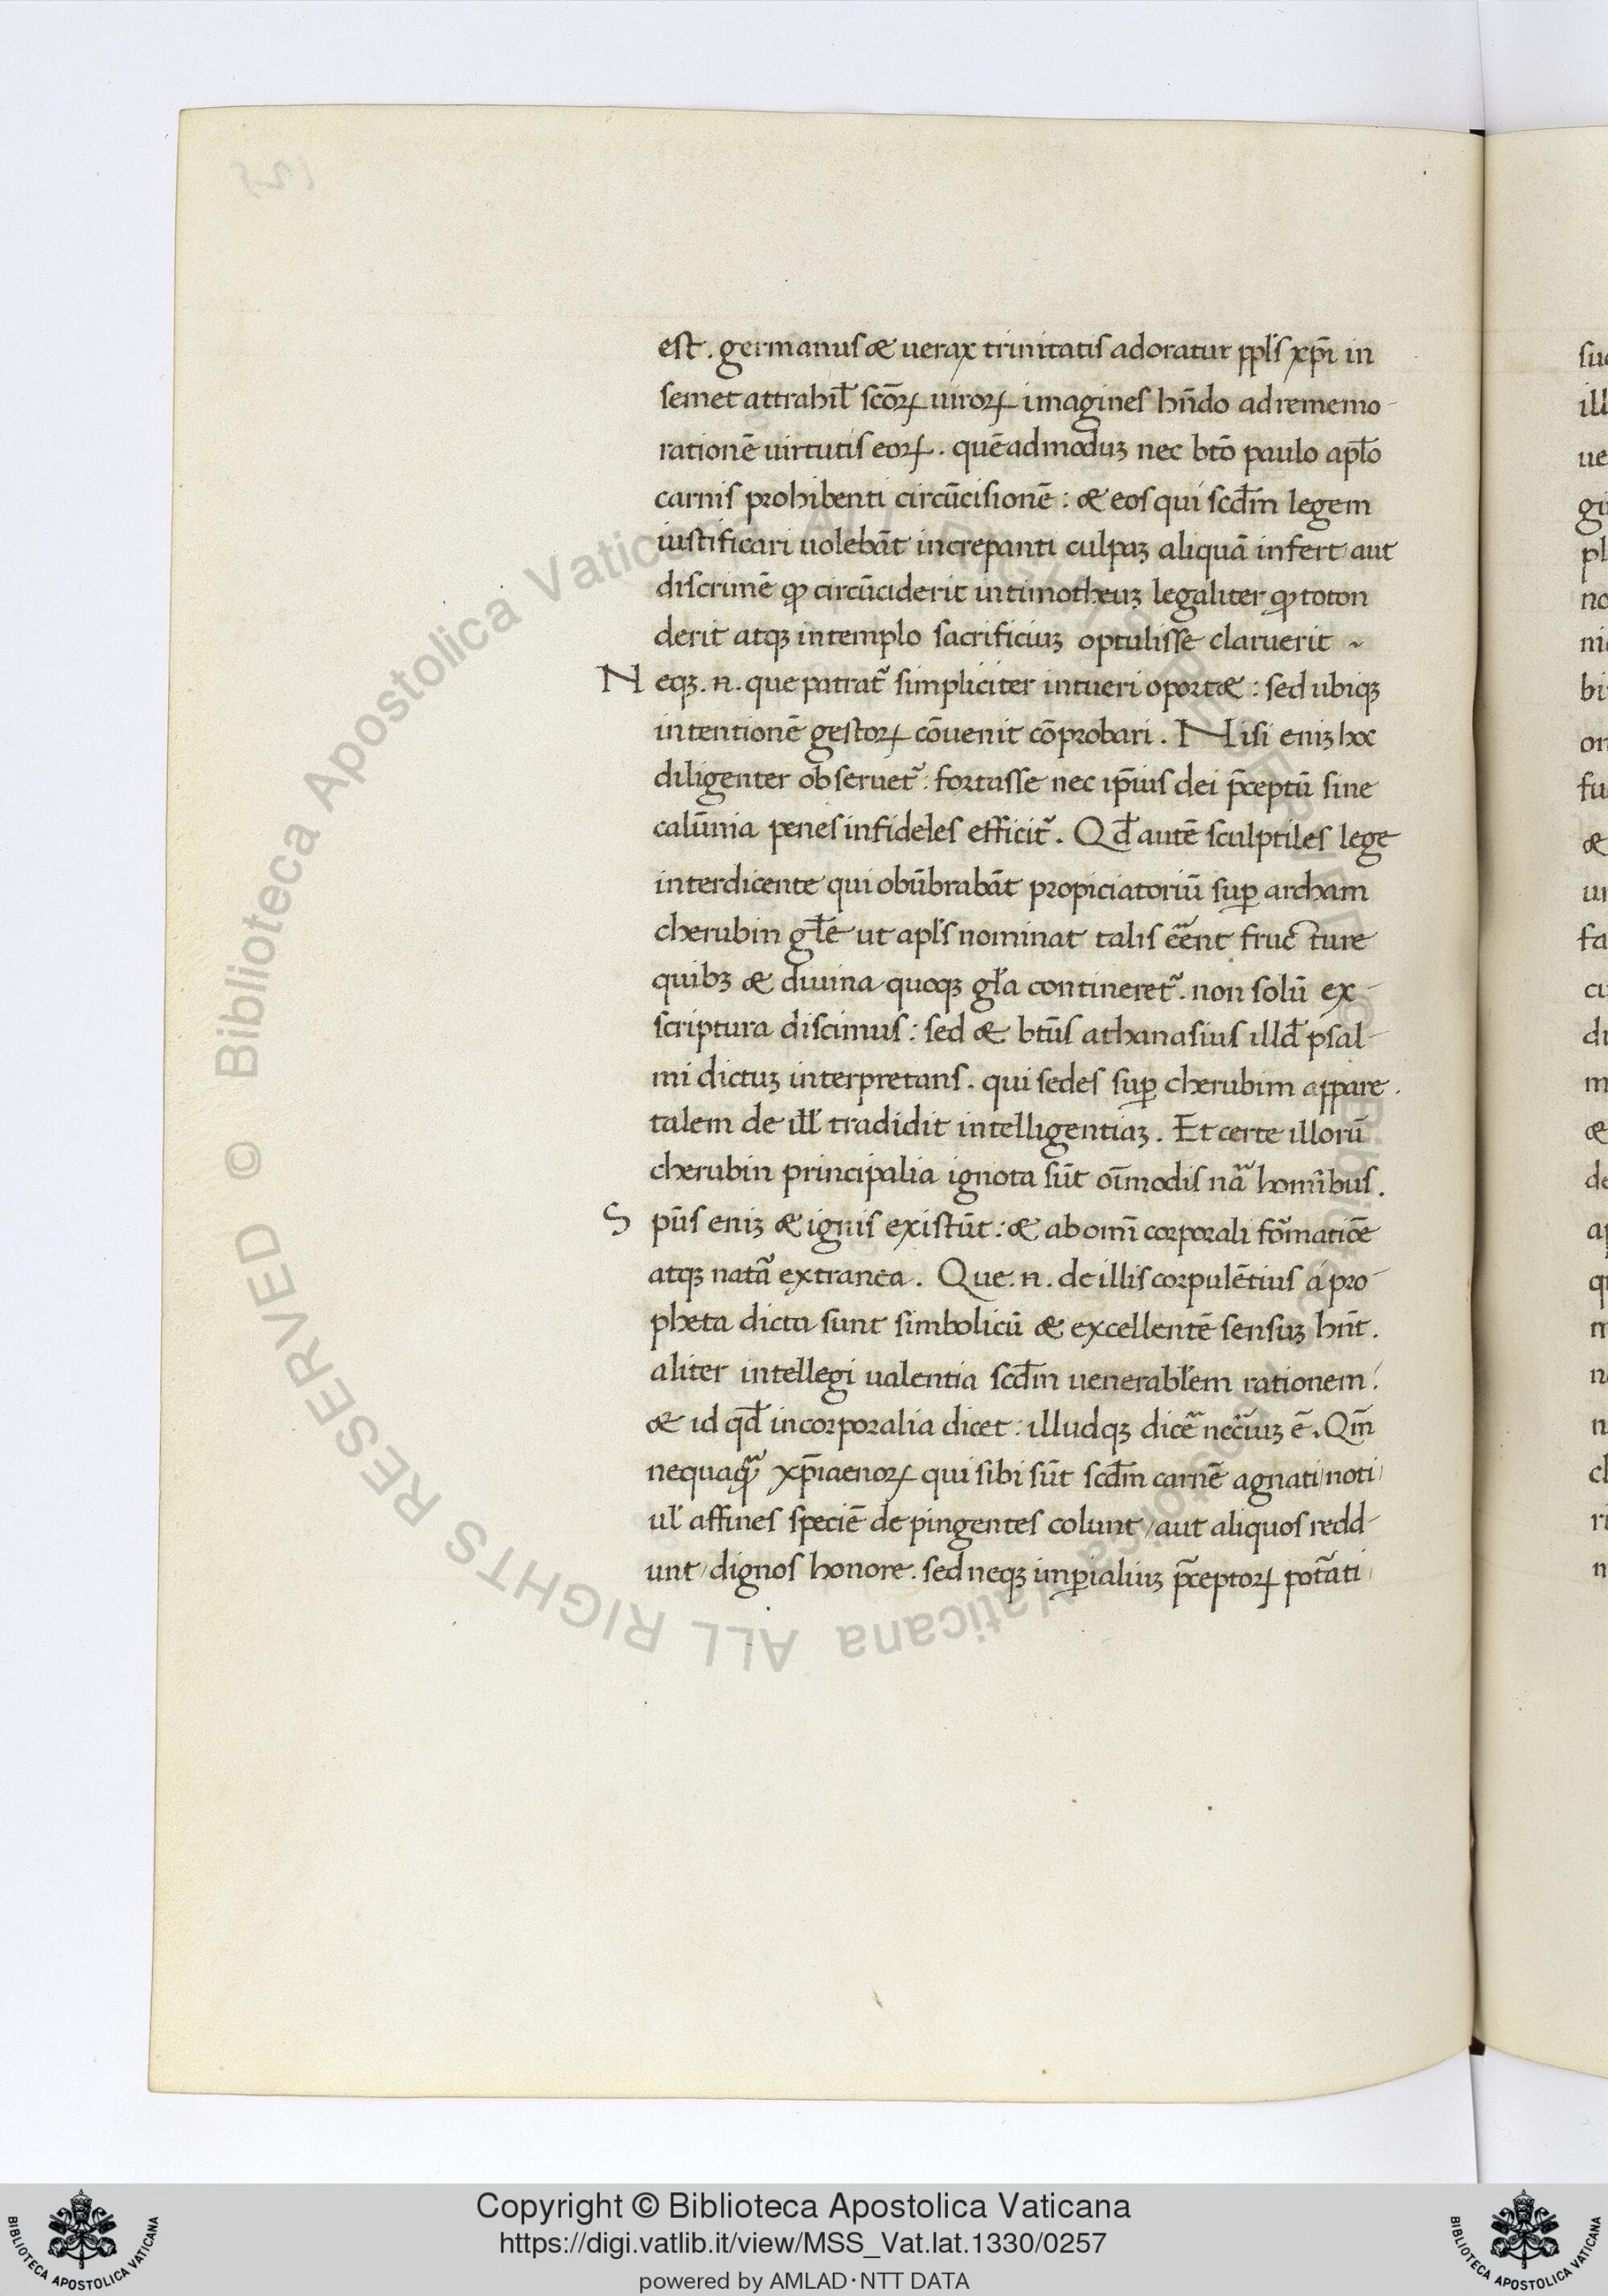 est. germanus & uerax trinitatis adoratur ppl's xp̄i in
semet attrahit̄ sc̄oꝝ uiroꝝ imagines hn̄do ad rememo-
rationē uirtutis eoꝝ. quēadmoduꝫ nec bt̄o paulo apl̄o
carnis prohibenti circūcisionē : & eos qui scd̄m legem
iustificari uolebāt increpanti culpaꝫ aliquā infert aut
discrimē ꝙ circūciderit uit timotheuꝫ legaliter ꝙ toton
derit atqꝫ in templo sacrificiuꝫ optulisse claruerit ~
Neqꝫ .n. que patrat᷑ simpliciter intueri oport& : sed ubiqꝫ
intentionē gestoꝝ cōuenit cōprobari. Nisi eniꝫ hoc
diligenter obseruet᷑ : fortasse nec ip̄ius dei p̄ceptū sine
calūnia penes infideles efficit᷑. Qd̄ autē sculptiles lege
interdicente qui obūbrabāt propiciatoriū suꝑ archam
cherubin gl̄e ut apl's nominat talis eēnt fruc ture
quibꝫ & diuina quoqꝫ gl̄a contineret᷑. non solū ex-
scriptura discimus : sed & bt̄us athanasius illd̄ psal-
mi dictuꝫ interpretans. qui sedes suꝑ cherubim appare.
talem de ill' tradidit intelligentiaꝫ. Et certe illorū
cherubin principalia ignota sūt oīmodis nā homībus.
Spūs eniꝫ & ignis existūt : & ab omī corporali fōmatiōe
atqꝫ natā extranea. Que .n. de illis corpulētius a pro-
pheta dicta sunt simbolicū & excellentē sensuꝫ hn̄t.
aliter intellegi ualentia scd̄m uenerabl'em rationem.
& id qd̄ incorporalia dicet : illudqꝫ dicē necīuꝫ ē. Qm̄
nequaꝗ xp̄iaenoꝝ qui sibi sūt scd̄m carnē agnati/noti/
ul' affines speciē depingentes colunt/aut aliquos redd-
unt/dignos honore. sed neqꝫ imꝑialiuꝫ p̄ceptoꝝ potāti/
su
ill
ue
gi
pl
no
ni
bi
on
fu
&
ui
fa
ci
di
m
&
de
ap
q
m
n
n
cl
ri
n
Biblioteca Apostolica Vaticana ALL RIGHTS RESERVED ©
Copyright © Biblioteca Apostolica Vaticana
https://digi.vatlib.it/view/MSS_Vat.lat.1330/0257
powered by AMLAD·NTT DATA
BIBLIOTECA APOSTOLICA VATICANA
BIBLIOTECA APOSTOLICA VATICANA